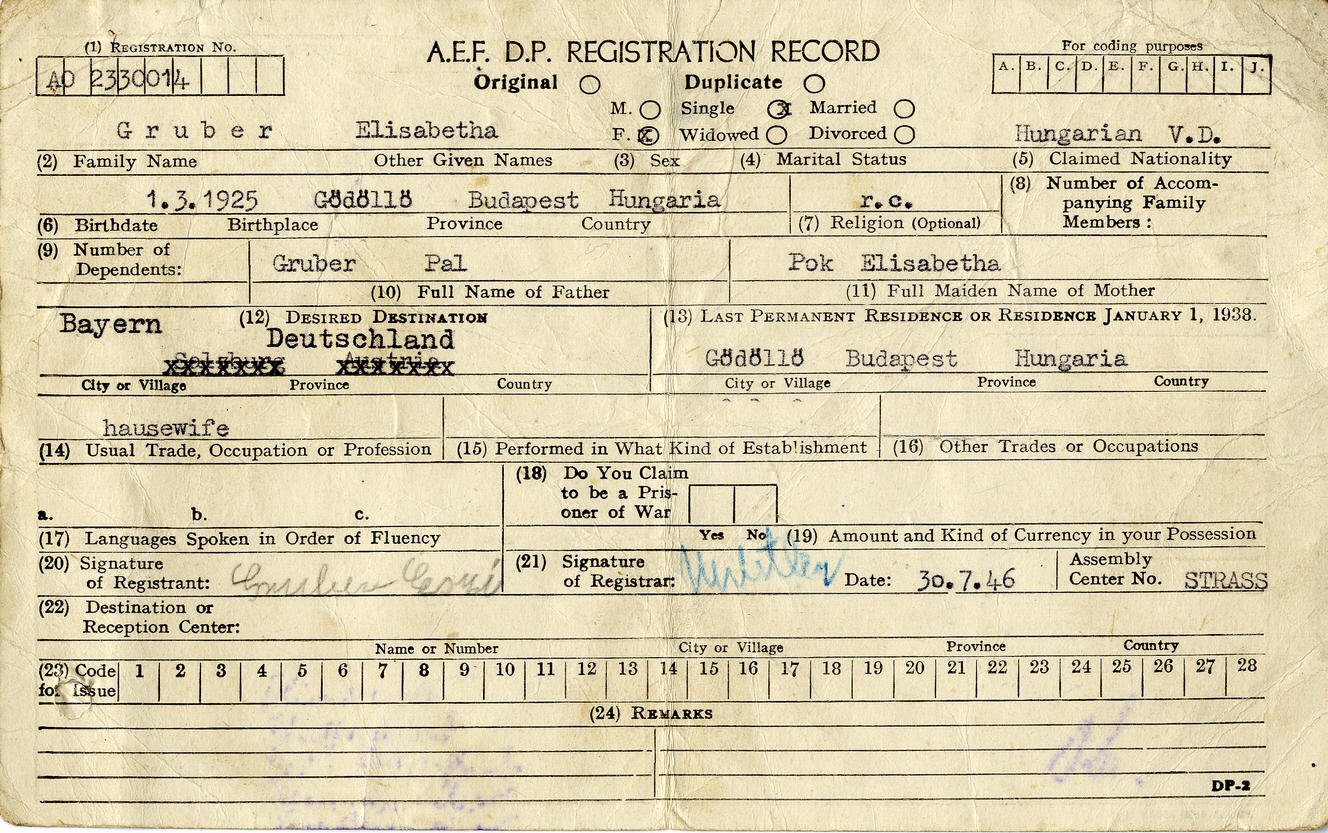 (1) Registration No.
A0 2330014
A.E.F. D.P. REGISTRATION RECORD
Original Duplicate
For coding purposes
A. B. C. D. E. F. G. H. I. J.
M. Single X Married
F. X Widowed Divorced
Gruber Elisabetha Hungarian V.D.
(2) Family Name Other Given Names (3) Sex (4) Marital Status (5) Claimed Nationality
1.3.1925 Gödöllö Budapest Hungaria r.c.
(6) Birthdate Birthplace Province Country (7) Religion (Optional)
(8) Number of Accom-
panying Family
Members :
(9) Number of
Dependents:
Gruber Pal Pok Elisabetha
(10) Full Name of Father (11) Full Maiden Name of Mother
Bayern (12) Desired Destination
Deutschland
Salzburg Austria
City or Village Province Country
(13) Last Permanent Residence or Residence January 1, 1938.
Gödöllö Budapest Hungaria
City or Village Province Country
hausewife
(14) Usual Trade, Occupation or Profession (15) Performed in What Kind of Establishment (16) Other Trades or Occupations
a. b. c.
(17) Languages Spoken in Order of Fluency
(18) Do You Claim
to be a Pris-
oner of War
Yes No (19) Amount and Kind of Currency in your Possession
(20) Signature
of Registrant: Gruber
(21) Signature
of Registrar:
Date: 30.7.46
Assembly
Center No. STRASS
(22) Destination or
Reception Center:
Name or Number City or Village Province Country
(23) Code
for Issue
1 2 3 4 5 6 7 8 9 10 11 12 13 14 15 16 17 18 19 20 21 22 23 24 25 26 27 28
(24) Remarks
DP-2